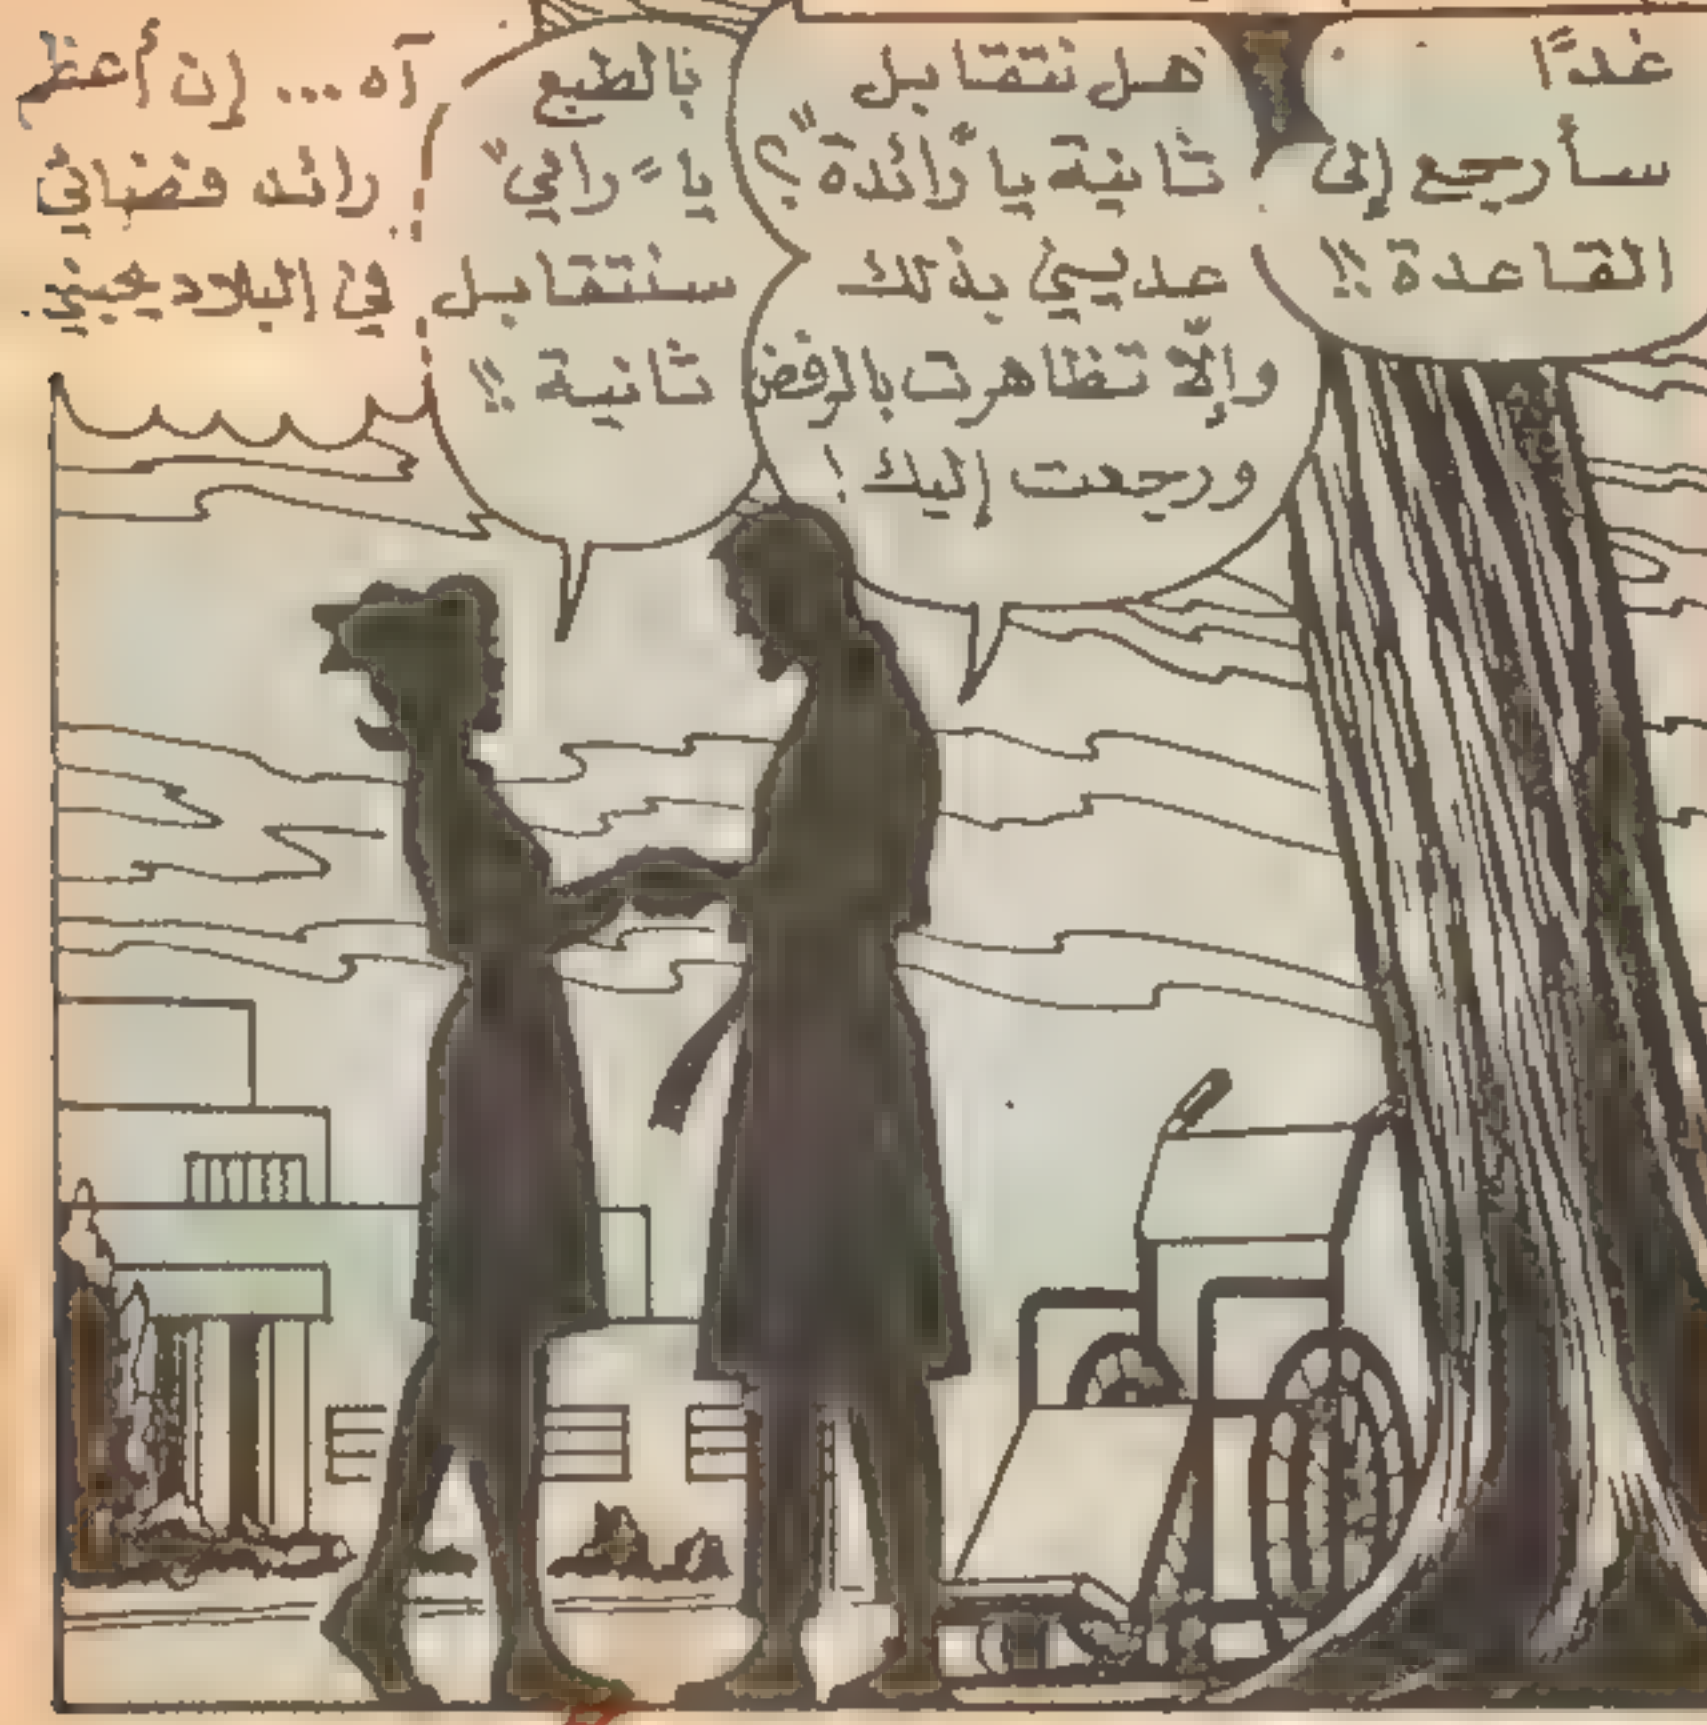 غدًا
سأرجع إلى
القاعدة !!
هل نتقابل
ثانية يا "رائدة"؟
عديني بذلك
وإلّا تظاهرت بالرفض
ورجعت إليك !
بالطبع
يا "رامي"
سنتقابل
ثانية !!
آه ... إن أعظم
رائد فضائي
في البلاد يحبني